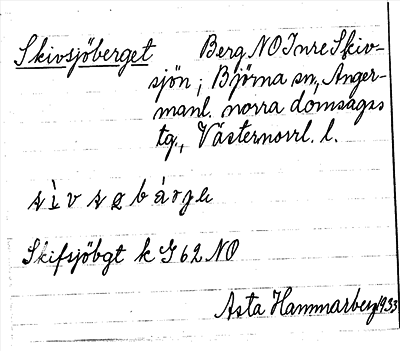 Skivsjöberget Berg NO Inre Skiv-
sjön; Björna sn., Ånger-
manl. norra domsagas
tg., Västernorrl. l.
Skifsjöbgt k G 62 NO
Asta Hammarberg 1933